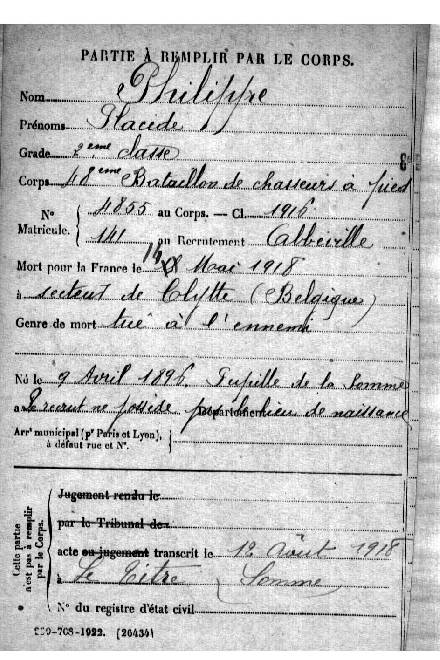 PARTIE À REMPLIR PAR LE CORPS.
Nom Philippe
Prénoms Placide
Grade 2ème classe
Corps 48ème Bataillon de chasseurs à pied
N° Matricule. { 4855 au Corps. — Cl. 1916
141 au Recrutement Abbeville
Mort pour la France le 14 Mai 1918
à secteur de Clytte (Belgique)
Genre de mort tué à l'ennemi
Né le 9 Avril 1896. Pupille de la Somme
à Le recrut ne possède pas le lieu de naissance Département
Arrt municipal (pr Paris et Lyon), à défaut rue et N°.
Cette partie n'est pas à remplir par le Corps.
Jugement rendu le
par le Tribunal de
acte ou jugement transcrit le 12 Août 1918
à Le Titre (Somme)
N° du registre d'état civil
(26434)